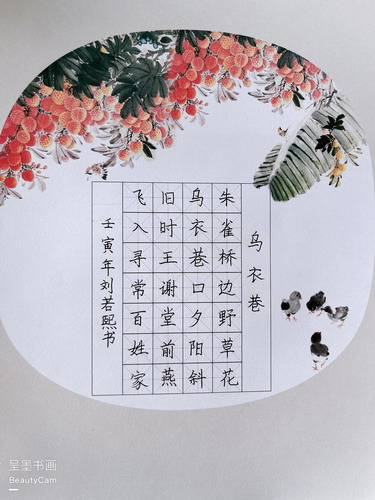 乌衣巷
朱雀桥边野草花
乌衣巷口夕阳斜
旧时王谢堂前燕
飞入寻常百姓家
壬寅年刘若熙书
呈墨书画
BeautyCam